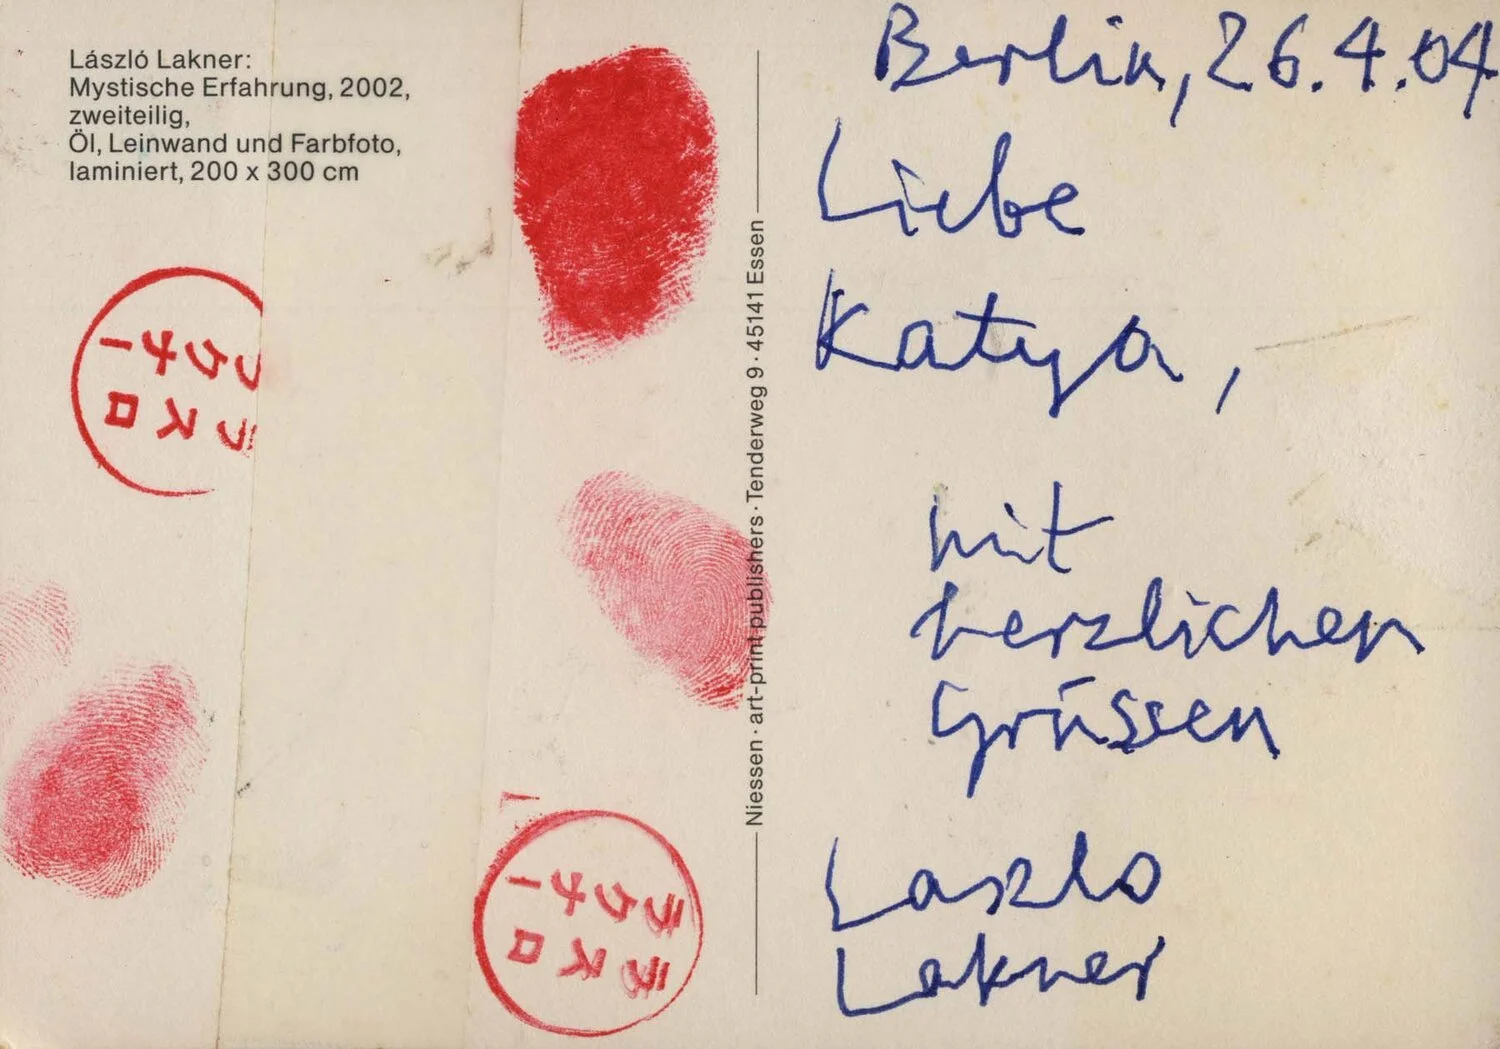 László Lakner:
Mystische Erfahrung, 2002,
zweiteilig,
Öl, Leinwand und Farbfoto,
laminiert, 200 x 300 cm
Niessen · art-print publishers · Tenderweg 9 · 45141 Essen
Berlin, 26.4.04
Liebe
Katya,
mit
herzlichen
Grüssen
Laszlo
Lakner